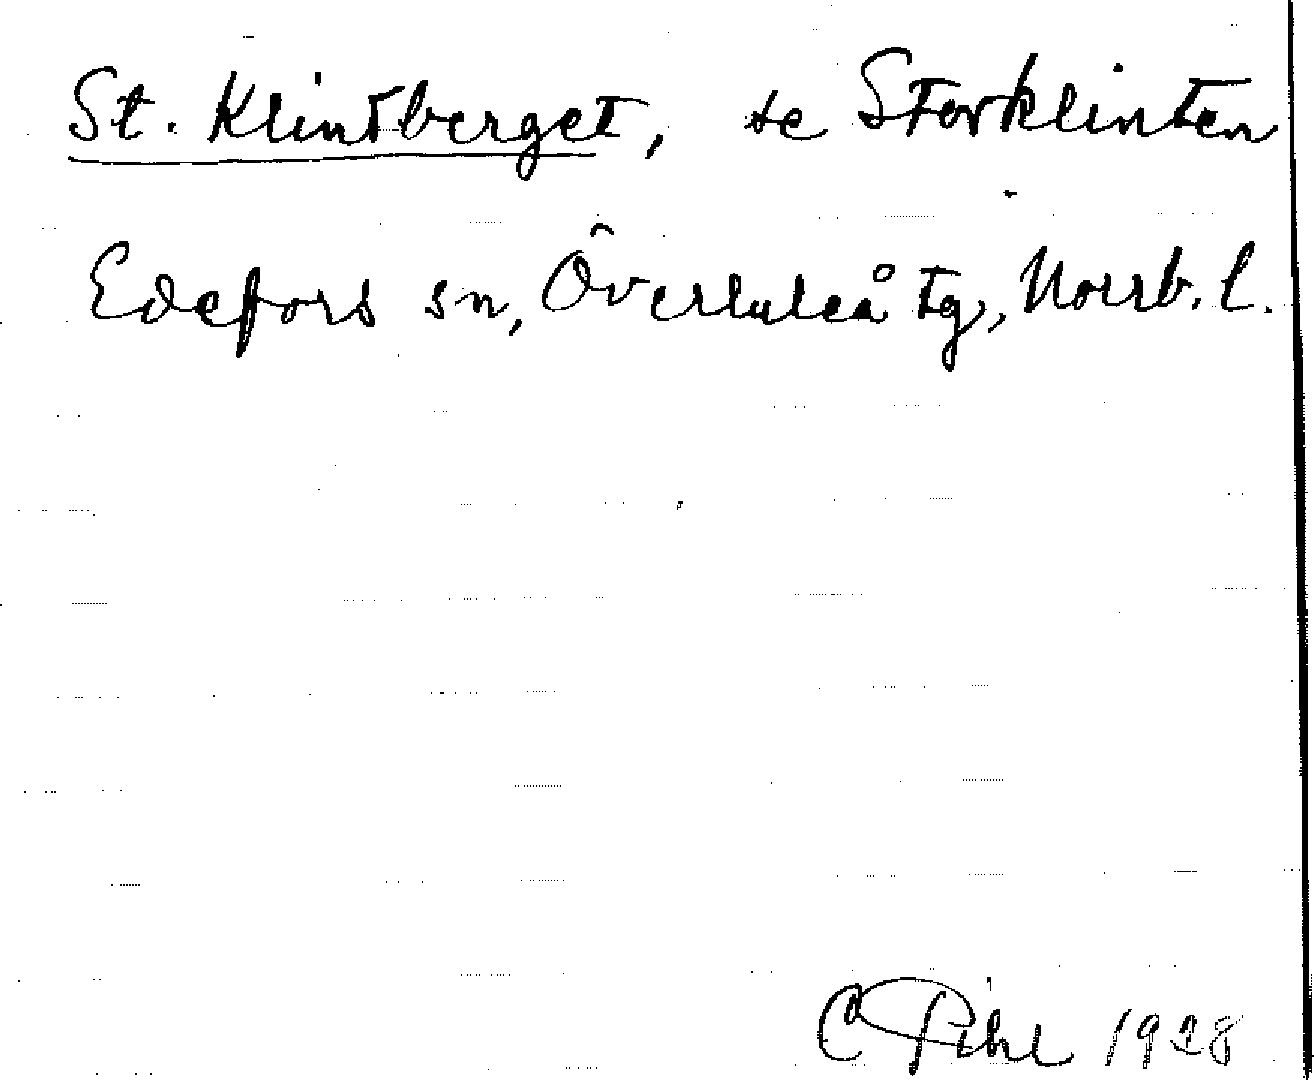 St. Klintberget, se Storklinten
Edefors sn, Överluleå tg, Norrb. l.
C Pihl 1928